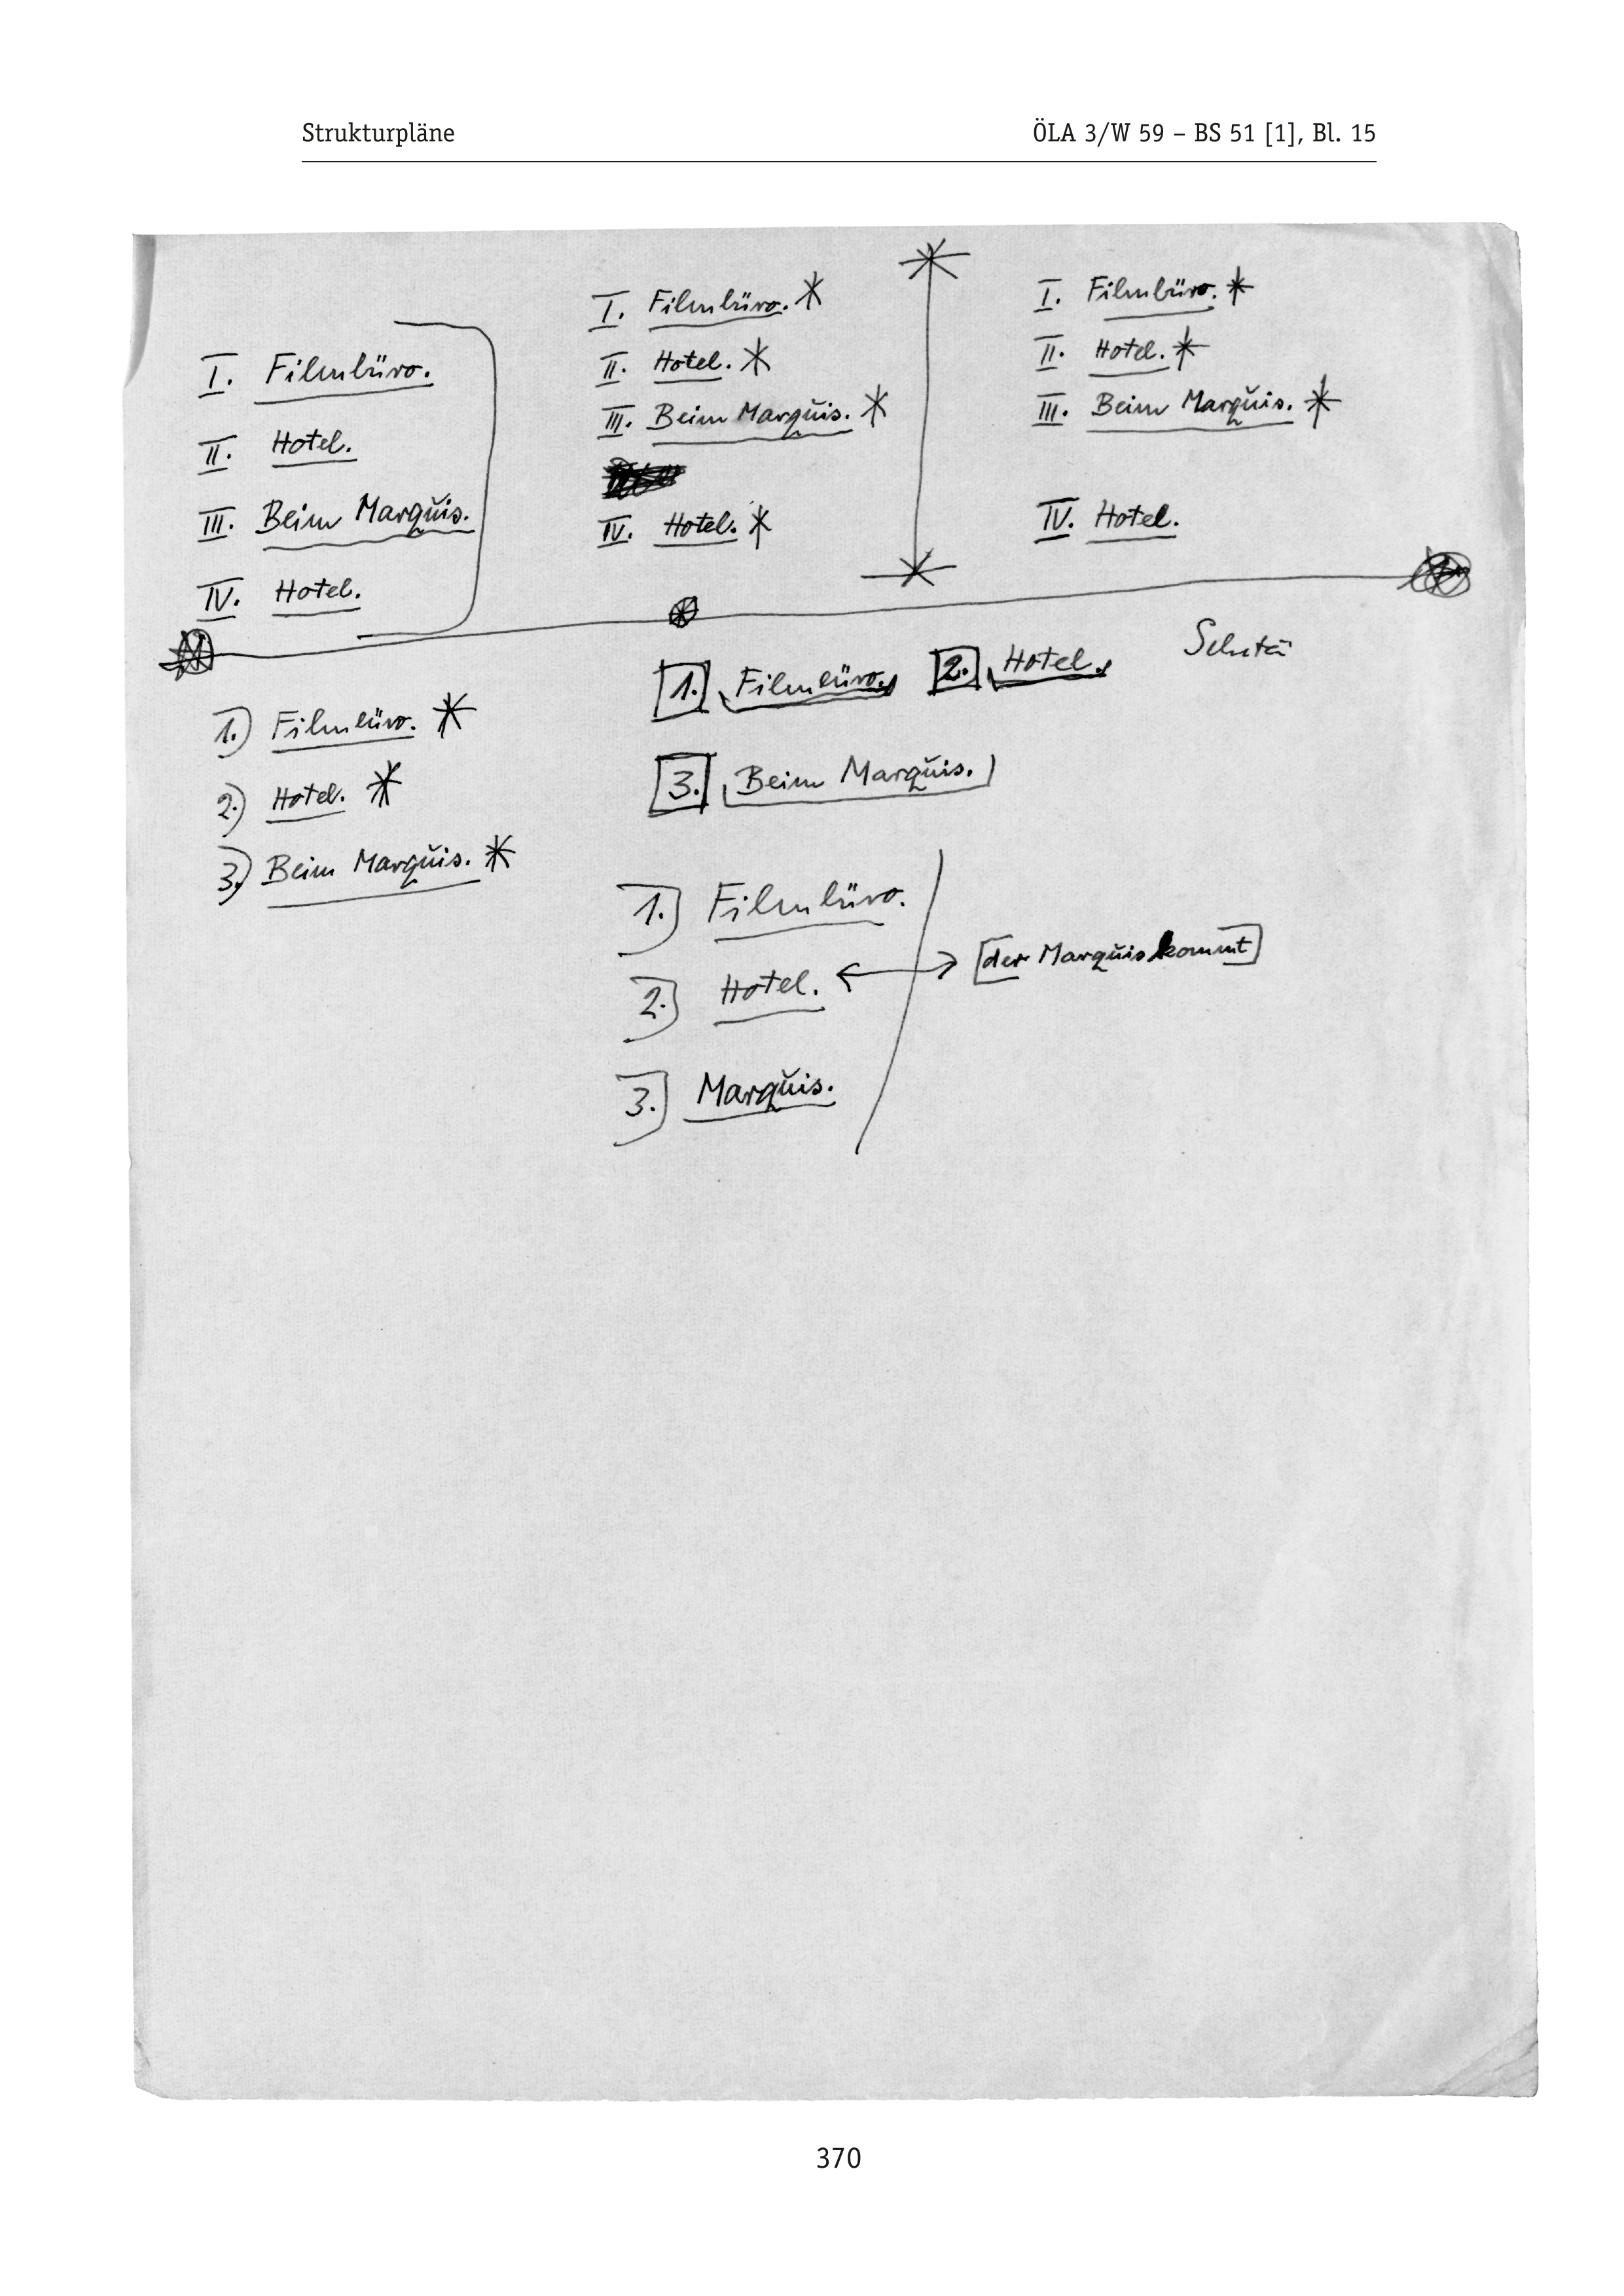 Strukturpläne
ÖLA 3/W 59 – BS 51 [1], Bl. 15
I. Filmbüro.
II. Hotel.
III. Beim Marquis.
IV. Hotel.
I. Filmbüro. *
II. Hotel. *
III. Beim Marquis. *
IV. Hotel. *
I. Filmbüro. *
II. Hotel. *
III. Beim Marquis. *
IV. Hotel.
1.) Filmbüro. *
2.) Hotel. *
3.) Beim Marquis. *
1. Filmbüro. 2. Hotel.
3. Beim Marquis.
1.) Filmbüro.
2.) Hotel. ↔ [der Marquis kommt]
3.) Marquis.
370